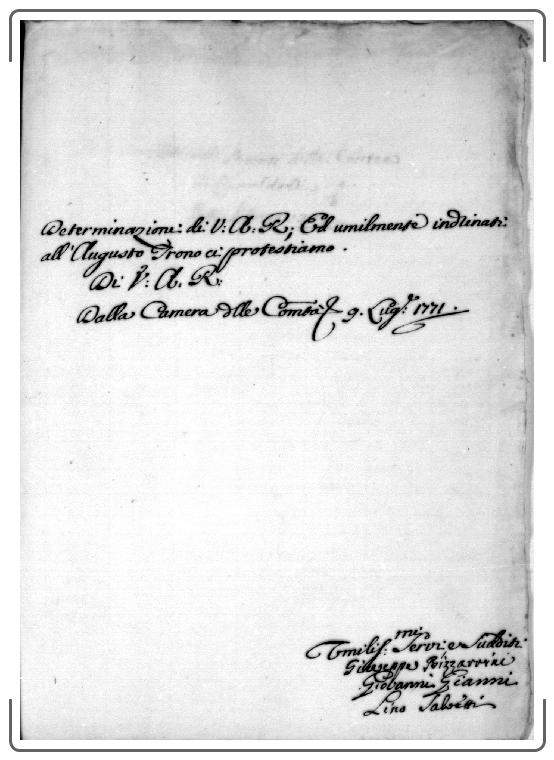 Determinazioni di V: A: R; Ed umilmente inclinati
all'Augusto Trono ci protestiamo.
Di V: A: R:
Dalla Camera dlle 9. Lugº: 1771.
Umilis:mi Servi e Sudditi
Giuseppe Bizzarrini
Giovanni Gianni
Lino Salvetti